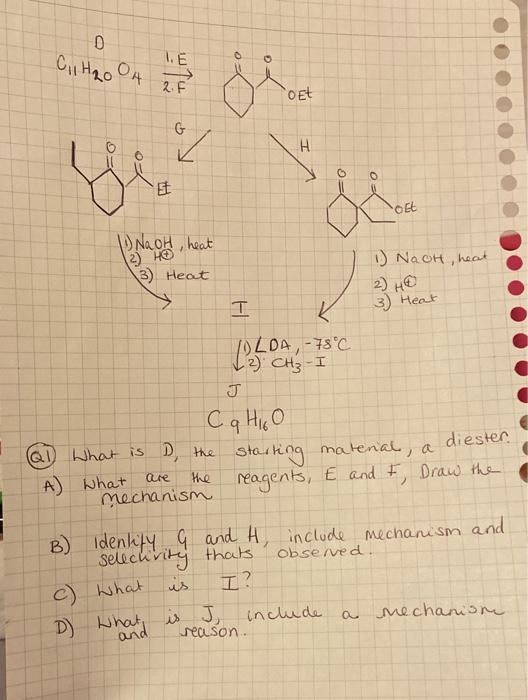 D
C11H20O4 1. E
2. F
O O
OEt
G
H
O O
Et
O O
OEt
1) NaOH, heat
2) H⊕
3) Heat
1) NaOH, heat
2) H⊕
3) Heat
I
1) LDA, -78°C
2) CH3-I
J
C9H16O
Q1) What is D, the starting material, a diester.
A) What are the reagents, E and F, Draw the
mechanism
B) Identify G and H, include mechanism and
selectivity thats observed.
C) What is I?
D) What is J, include a mechanism
and reason.